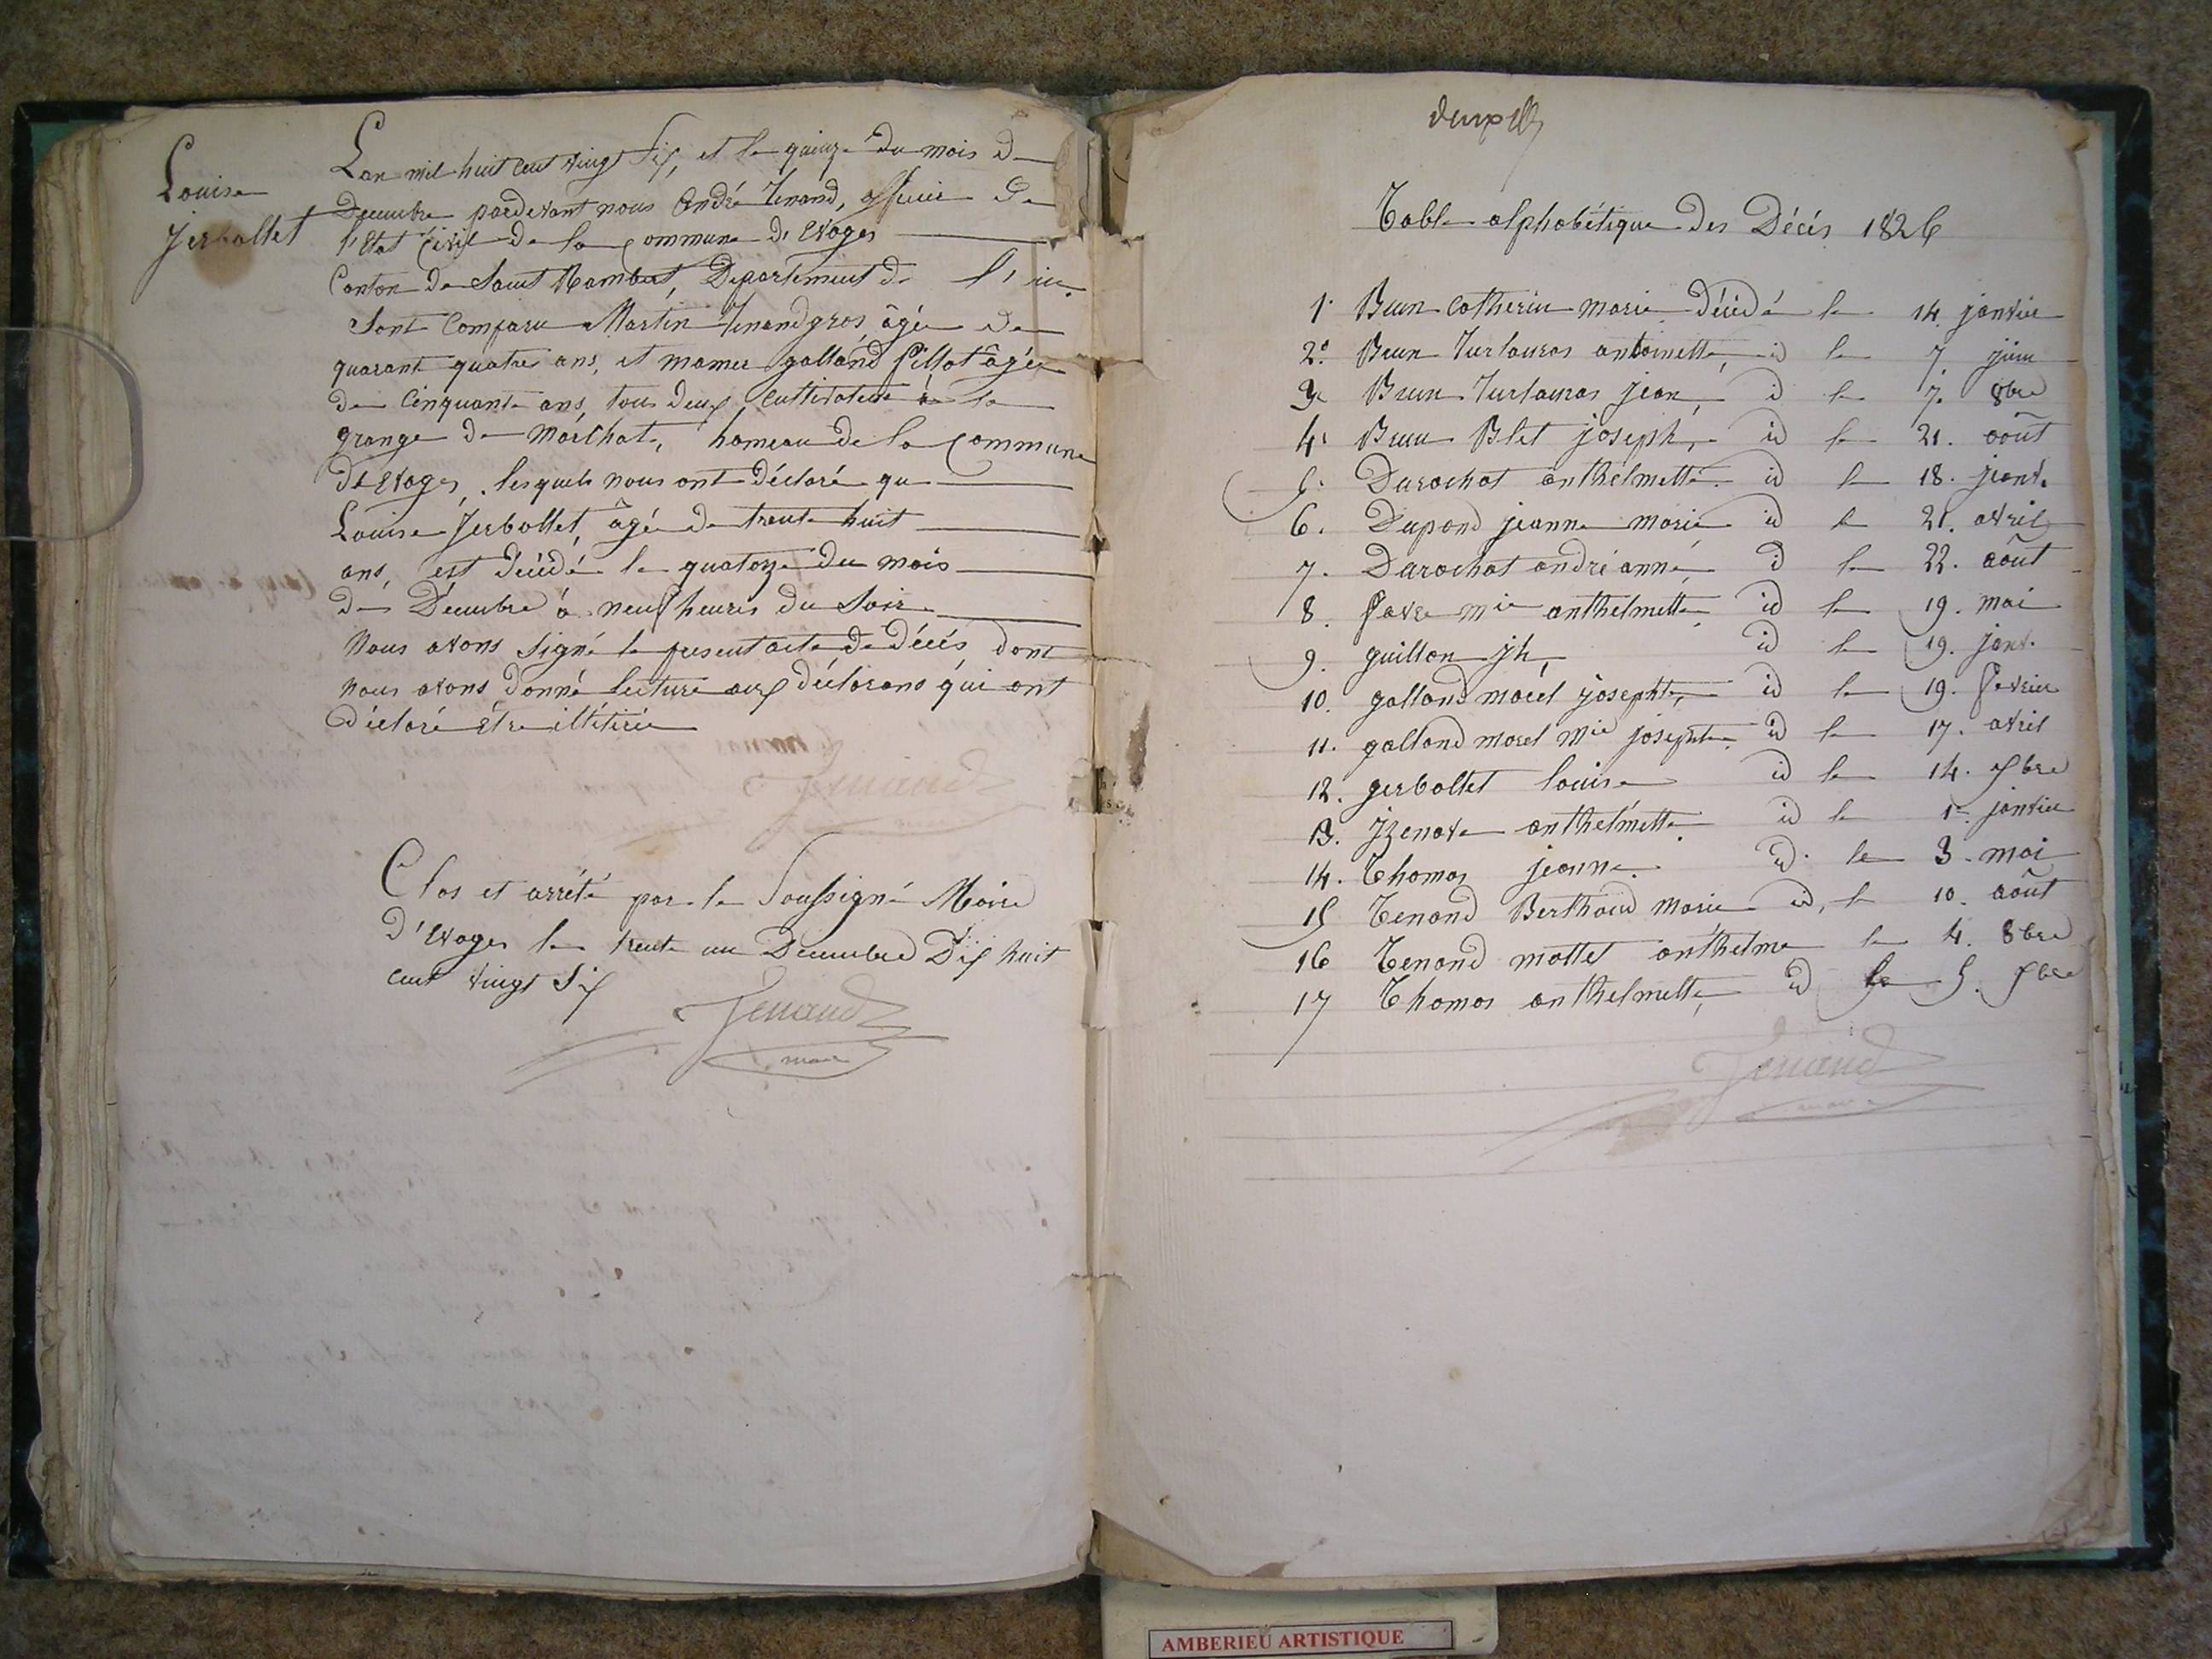 Louise
Jerbollet
Lan mil huit cent vingt Six, et le quinze du mois de
Decembre pardevant nous André Tenand, officier de
l'Etat Civil de la Commune de Evoges
Canton de Saint Rambert, Departement de l'Ain.
Sont Comparu Martin Tenand gros, âgée de
quarant quatres ans, et mamer galland Pillot âgée
de Cinquante ans, tous deux Cultivateur à la
grange de Morchat, hameau de la Commune
de Evoges, lesquels nous ont déclaré que
Louise Jerbollet, âgé de trente huit
ans, est décédé le quatorze du mois
de Décembre à neuf heures du Soir
Nous avons signé le present acte de Décés, dont
nous avons donné lecture aux déclarans qui ont
déclaré être illétirée
Tenand
Clos et arrêté par le Soussigné Maire
d'Evoges le trente un Decembre Dix huit
cent vingt Six
Tenand
maire
Table alphabétique des Décés 1826
1. Brun Catherine marie Décédé le 14. janvier
2. Brun Turlauras antoinette, id le 7 juin
3. Brun Turlauras jean, id le 7. 8bre
4. Brun Blet joseph, id le 21. août
5. Durochat anthelmette. id le 18. janv.
6. Dupond jeanne marie id le 21. avril
7. Durochat andré anne, id le 22. août
8. favre mie anthelmette, id le 19. mai
9. guillon jh, id le 19. janv.
10. galland morel josephte, id le 19. fevrier
11. galland morel mie josephte id le 17. avril
12. gerbollet louise id le 14. xbre
13. Jzenave anthelmette id le 1er janvier
14. Thomas jeanne. id. le 3. mai
15 Tenand Berthaud marie id, le 10. août
16 Tenand mottet anthelme le 4. 8bre
17 Thomas anthelmette, id le 5. xbre
Tenand
maire
AMBERIEU ARTISTIQUE